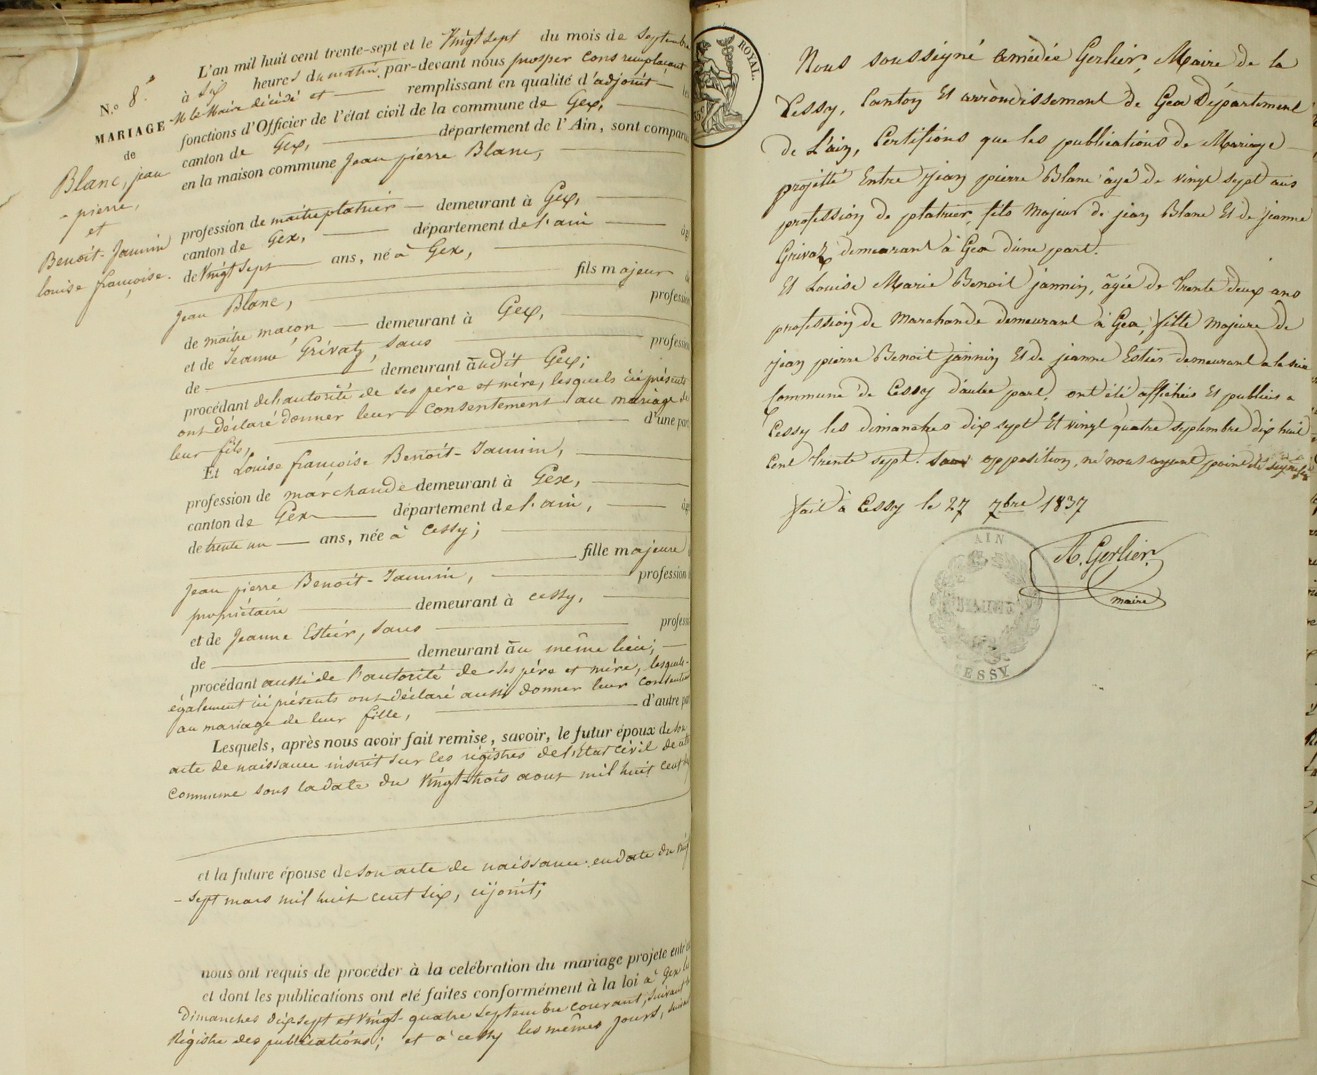 L'an mil huit cent trente-sept et le vingt sept du mois de septembre
à six heures du matin, par-devant nous prosper cons remplaçant
M. le Maire décédé et remplissant en qualité d'adjoint
fonctions d'Officier de l'état civil de la commune de Gex,
canton de Gex, département de l'Ain, sont comparu
en la maison commune Jean pierre Blanc,
N.o 8.
MARIAGE
de
Blanc, jean
-pierre,
et
Benoit-Jannin
louise françoise.
profession de maître platrier demeurant à Gex,
canton de Gex, département de l'ain
de vingt sept ans, né à Gex,
fils majeur
Jean Blanc,
profession
de maître maçon demeurant à Gex,
et de Jeanne Grivaz, sans profession
de demeurant audit Gex;
procédant de l'autorité de ses père et mère, lesquels ici présents
ont déclaré donner leur consentement au mariage de
leur fils, d'une part
Et Louise françoise Benoit-Jannin,
profession de marchande demeurant à Gex,
canton de Gex département de l'ain,
de trente un ans, née à Cessy;
fille majeure
Jean pierre Benoit-Jannin, profession
propriétaire demeurant à Cessy,
et de Jeanne Estier, sans profess
de demeurant au même lieu;
procédant aussi de l'autorité de ses père et mère, lesquels
également ici présents ont déclaré aussi donner leur consentement
au mariage de leur fille, d'autre part
Lesquels, après nous avoir fait remise, savoir, le futur époux de son
acte de naissance inscrit sur les régistres de l'Etat civil de cette
commune sous la date du vingt-trois aout mil huit cent
et la future épouse de son acte de naissance en date du vingt
-sept mars mil huit cent six, ci joint;
nous ont requis de procéder à la célébration du mariage projeté entr'
et dont les publications ont été faites conformément à la loi à Gex les
dimanches dix sept et vingt-quatre septembre courant, suivant le
Régistre des publications; et à Cessy les mêmes jours, suivant
ROYAL.
Nous soussigné amédée Gerlier, Maire de la
Cessy, Canton Et arrondissement de Gex Département
de L'ain, Certifions que les publications de Mariage
projetté Entre jean pierre Blanc âgé de vingt sept ans
profession de platrier, fils majeur de jean Blanc Et de jeanne
Grivaz demeurant à Gex d'une part.
Et Louise Marie Benoit jannin, âgée de trente deux ans
profession de Marchande demeurant à Gex, fille majeure de
jean pierre Benoit jannin Et de jeanne Estier demeurant
Commune de Cessy d'autre part, ont été affichées Et publiées a
Cessy les dimanches dix sept Et vingt quatre septembre dix huit
Cent trente sept. opposition, ne nous ayant point été
fait à Cessy le 27 7bre 1837
A. Gerlier.
maire
AIN
CESSY